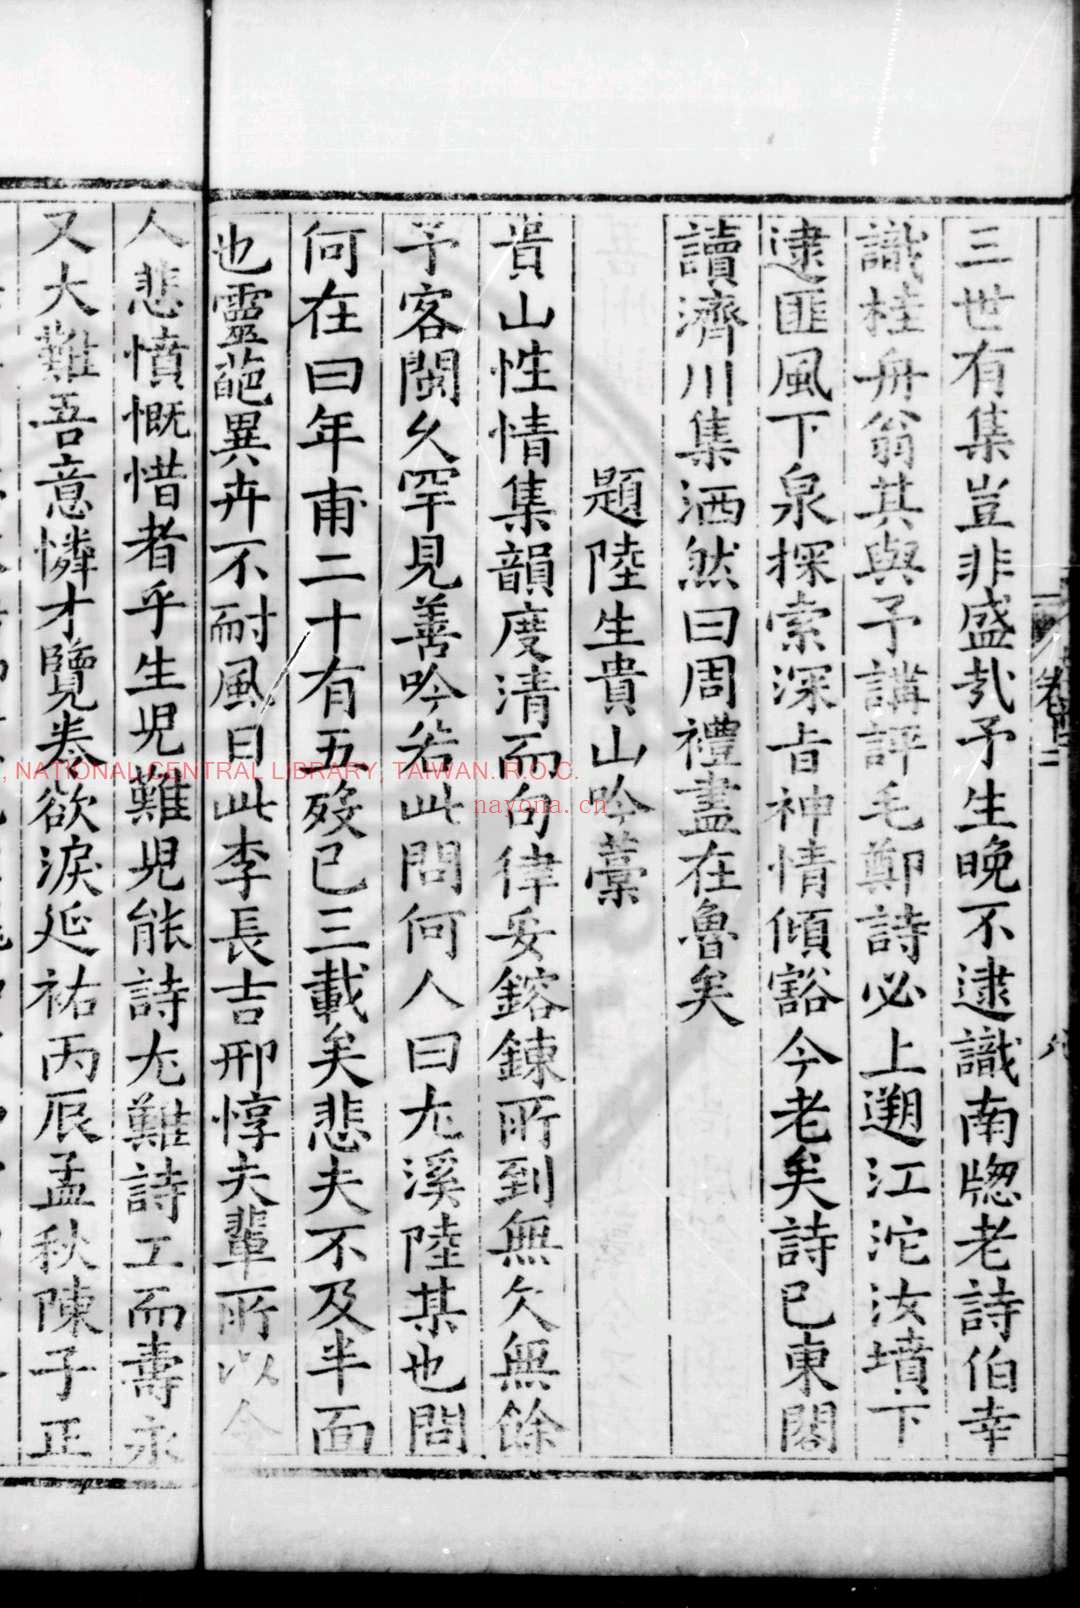 三世有集豈非盛哉予生晚不逮識南牕老詩伯幸
識桂舟翁其與予講評毛鄭詩必上遡江沱汝墳下
逮匪風下泉探索深㫖神情傾豁今老矣詩已東閣
讀濟川集洒然曰周禮盡在魯矣
題陸生貴山吟藁
貴山性情集韻度清而句律妥鎔鍊所到無欠無餘
予客閩久罕見善吟若此問何人曰尤溪陸某也問
何在曰年甫二十有五歿已三載矣悲夫不及半面
也靈葩異卉不耐風日此李長吉邢惇夫輩所以令
人悲憤慨惜者乎生児難児能詩尤難詩工而壽永
又大難吾意憐才覽巻欲淚延祐丙辰孟秋陳子正
卷十二
八
NATIONAL CENTRAL LIBRARY, TAIWAN. R.O.C.
nayona.cn